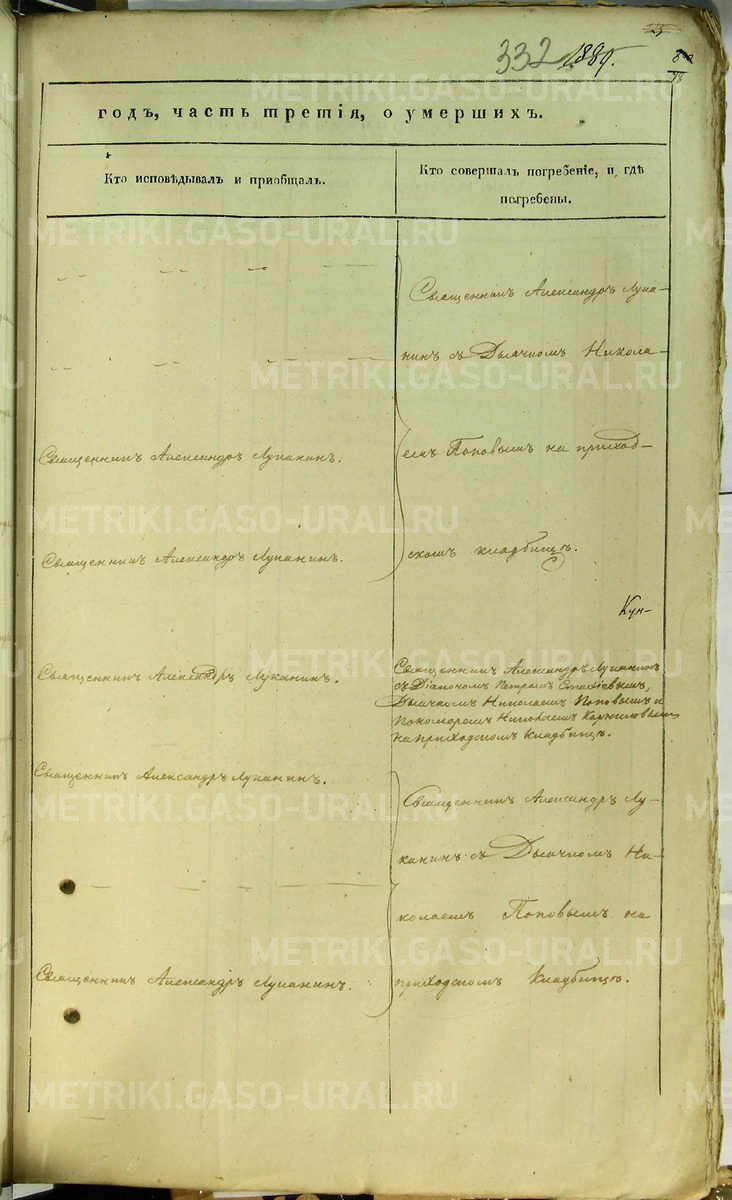 332
годъ, часть третія, о умершихъ.
Кто исповѣдывалъ и приобщалъ.
Кто совершалъ погребеніе, и гдѣ
погребены.
Священникъ Александръ Лука-
нинъ съ Дьячкомъ Никола-
емъ Поповымъ на приход-
скомъ кладбищѣ.
Священникъ Александръ Луканинъ.
Священникъ Александръ Луканинъ.
Кун-
Священникъ Александръ Луканинъ.
Священникъ Александръ Луканинъ
съ Діакономъ Петромъ
Дьячкомъ Николаемъ Поповымъ и
Пономоремъ Николаемъ
на приходскомъ кладбищѣ.
Священникъ Александръ Луканинъ.
Священникъ Александръ Лу-
канинъ съ Дьячкомъ Ни-
колаемъ Поповымъ на
приходскомъ кладбищѣ.
Священникъ Александръ Луканинъ.
METRIKI.GASO-URAL.RU